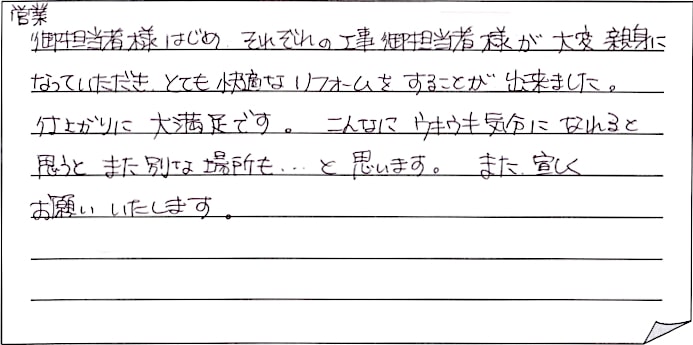 営業
御担当者様はじめ、それぞれの工事御担当者様が大変親身に
なっていただき、とても快適なリフォームをすることが出来ました。
仕上がりに大満足です。こんなにウキウキ気分になれると
思うとまた別な場所も…と思います。また、宜しく
お願いいたします。